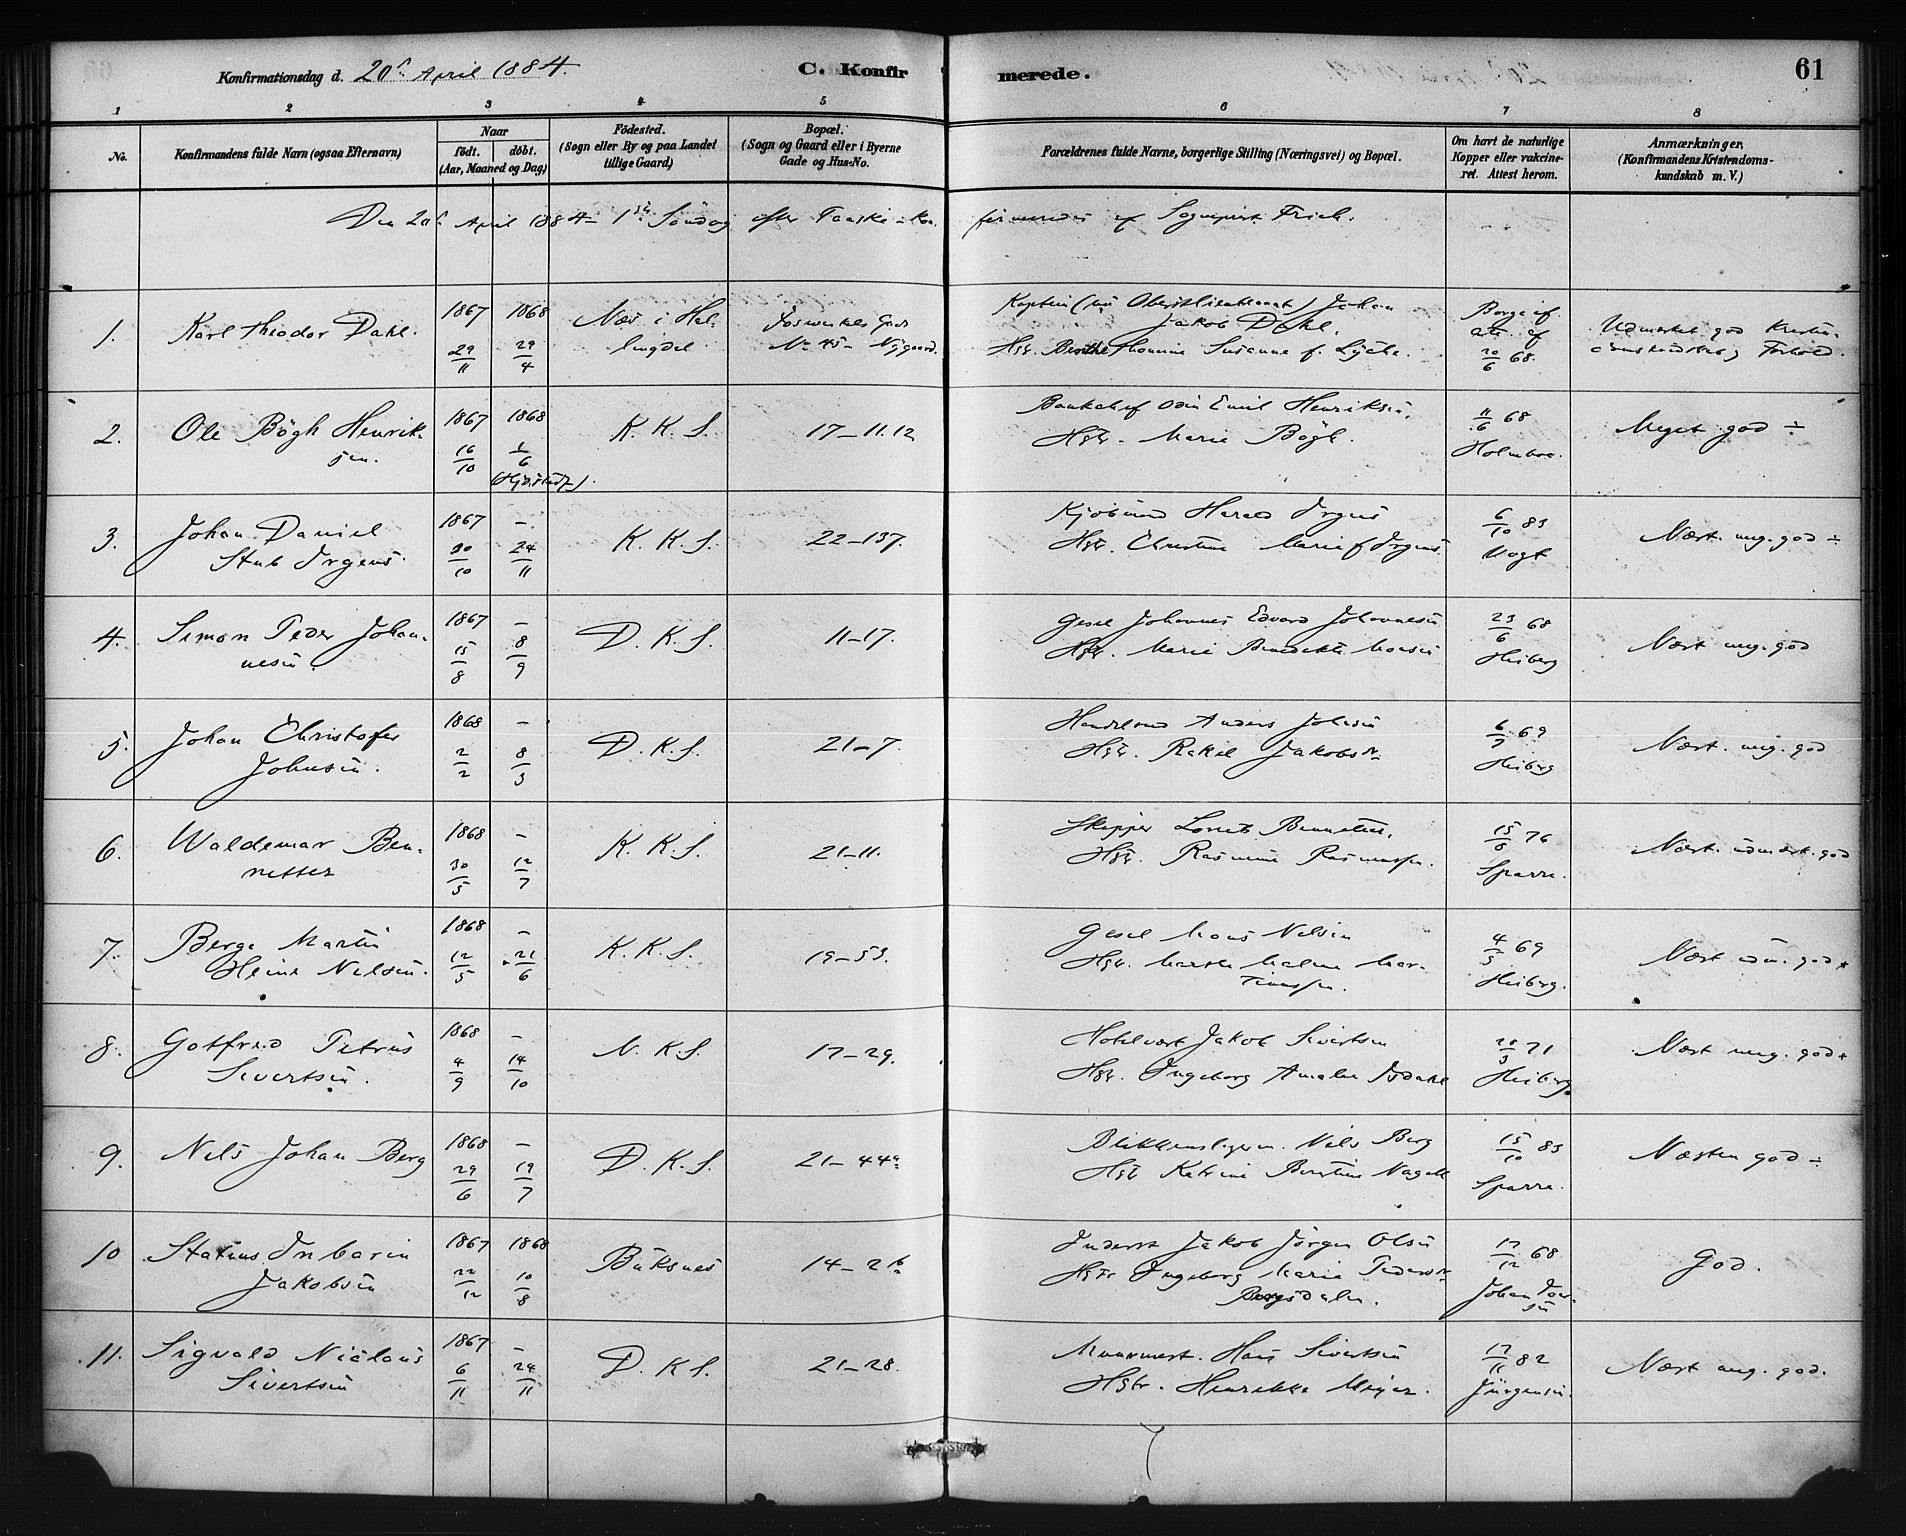 Konfirmationsdag d. 20de April 1884.
C. Konfirmerede.
61
1 2 3 4 5 6 7 8
No.
Konfirmandens fulde Navn (ogsaa Efternavn)
Naar
födt. döbt.
(Aar, Maaned og Dag)
Födested.
(Sogn eller By og paa Landet
tillige Gaard)
Bopæl.
(Sogn og Gaard eller i Byerne
Gade og Hus-No.
Forældrenes fulde Navne, borgerlige Stilling (Næringsvei) og Bopæl.
Om havt de naturlige
Kopper eller vakcine-
ret. Attest herom.
Anmærkninger.
(Konfirmandens Kristendoms-
kundskab m. V.)
Den 20de April 1884 1ste Söndag efter Paaske kon firmeredes af Sogneprest
1. Karl Theodor Dahl. 1867 29/11 1868 29/4
Næs i Hal-
lingdal
No 45 Nygaard.
Kaptein (nu Oberstlieutenant) Johan
Jakob Dahl.
Hstr. Berthe Thomine Susanne f. Lyche.
20/6 68.
Udmærket god
2. Ole Bögh Henrik-
sen. 1867 16/10 1868 1/6
K. K. S. 17–11.12
Odin Emil Henriksen.
Hstr. Marie Bögh.
11/6 68
Holmboe.
Meget god ÷
3. Johan Daniel
Stub Irgens. 1867 30/10 – 24/11
K. K. S. 22–137.
Kjöbmd Harald Irgens
Hstr. Christine Marie f Irgens
6/10 83
Vogt
Næst. mg. god ÷
4. Simon Peder Johan-
nesen. 1867 15/8 – 8/9
D. K. S. 11–17.
Gesel Johannes Edvard Johannesen
Hstr. Marie Benedikte Monsen
23/6 68
Heiberg
Næst mg. god
5. Johan Christofer
Johnsen. 1868 2/2 – 8/3
D. K. S. 21–7.
Anders Johnsen
Hstr. Rakel Jakobsdr
69
Heiberg
Næst. mg. god
6. Waldemar Ben-
netter 1868 30/5 – 12/7
K. K. S. 21–11.
Skipper Bennetter.
Hstr. Rasmine Rasmussen.
76
Sparre.
Næst. udmærk. god
7. Berge Martin
Heine Nilsen. 1868 12/5 – 21/6
K. K. S. 19–53.
Gesel Mons Nilsen
Hstr. Marthe Malene Mar-
69
Heiberg.
Næst udm. god
8. Gotfred Petrus
Sivertsen. 1868 4/9 – 14/10
N. K. S. 17–29.
Hotelvært Jakob Sivertsen
Hstr. Ingeborg Amalie Isdahl
71
Heiberg
Næst mg. god
9. Nils Johan Berg 1868 29/6 – 19/7
D. K. S. 21–44a
Nils Berg
Hstr Katrine
15/10 83
Sparre.
Næsten god ÷
10 Statius Inbarin
Jakobsen 1867 22/12 1868 10/8
Buksnes 14–2b
Inderst Jakob Jörgen Olsen
Hstr. Ingeborg Marie Pedersdr
17/12 68
Johan
God.
11. Sigvald Niclaus
Sivertsen 1867 6/11 – 24/11
D. K. S. 21–28.
Murmest. Hans Sivertsen
Hstr. Henrikke Meyer.
17/11 82
Jürgensen.
Næst mg. god.